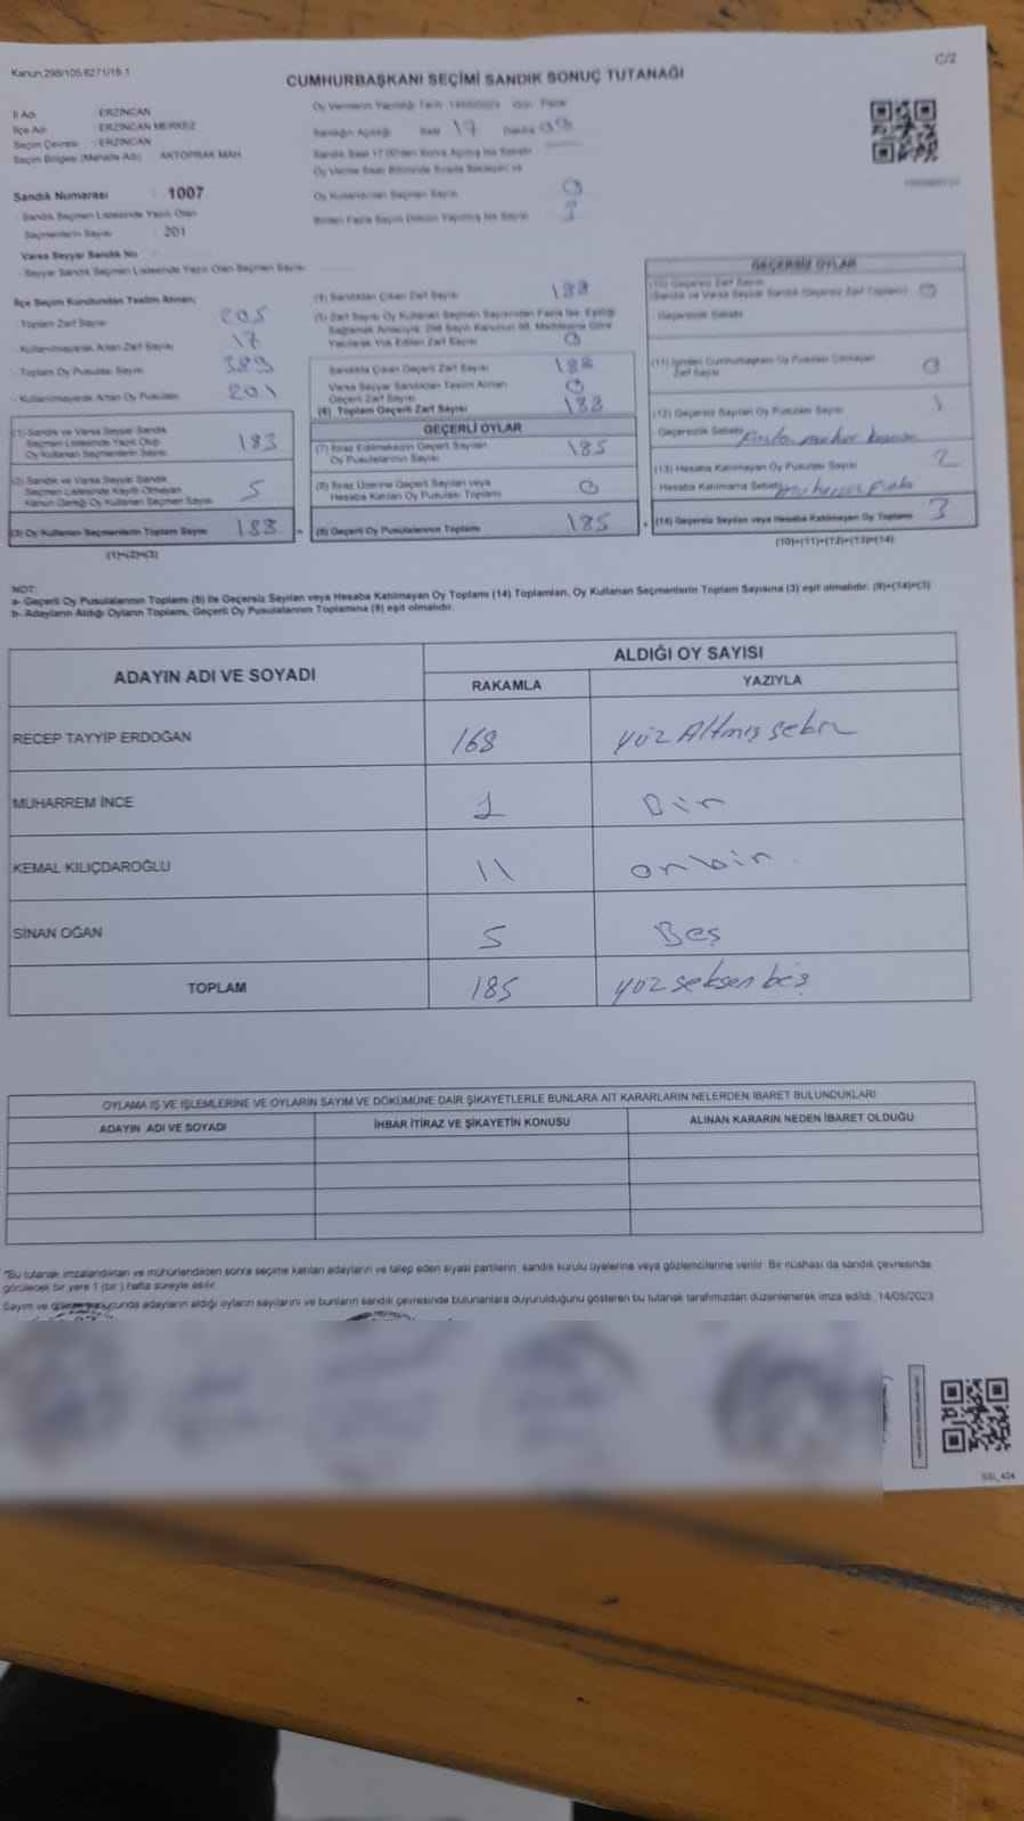 Kanun:298/105.6271/19.1
C/2
CUMHURBAŞKANI SEÇİMİ SANDIK SONUÇ TUTANAĞI
İl Adı : ERZİNCAN
İlçe Adı : ERZİNCAN MERKEZ
Seçim Çevresi : ERZİNCAN
Seçim Bölgesi (Mahalle Adı) : AKTOPRAK MAH.
Sandık Numarası : 1007
Sandık Seçmen Listesinde Yazılı Olan
Seçmenlerin Sayısı : 201
Varsa Seyyar Sandık No :
Seyyar Sandık Seçmen Listesinde Yazılı Olan Seçmen Sayısı
İlçe Seçim Kurulundan Teslim Alınan;
Toplam Zarf Sayısı 205
Kullanılmayarak Artan Zarf Sayısı 17
Toplam Oy Pusulası Sayısı 389
Kullanılmayarak Artan Oy Pusulası 201
(1) Sandık ve Varsa Seyyar Sandık
Seçmen Listesinde Yazılı Olup
Oy Kullanan Seçmenlerin Sayısı 183
(2) Sandık ve Varsa Seyyar Sandık
Seçmen Listesinde Kayıtlı Olmayan
Kanun Gereği Oy Kullanan Seçmen Sayısı 5
(3) Oy Kullanan Seçmenlerin Toplam Sayısı 188
(1)+(2)=(3)
Oy Kullandırılan Seçmen Sayısı 0
(4) Sandıktan Çıkan Zarf Sayısı 188
Sandıkta Çıkan Geçerli Zarf Sayısı 188
Varsa Seyyar Sandıktan Teslim Alınan
Geçerli Zarf Sayısı 0
(6) Toplam Geçerli Zarf Sayısı 188
GEÇERLİ OYLAR
(7) İtiraz Edilmeksizin Geçerli Sayılan
Oy Pusulalarının Sayısı 185
(8) İtiraz Üzerine Geçerli Sayılan veya
Hesaba Katılan Oy Pusulası Toplamı 0
(9) Geçerli Oy Pusulalarının Toplamı 185
GEÇERSİZ OYLAR
Geçersizlik Sebebi
(12) Geçersiz Sayılan Oy Pusulası Sayısı 1
Geçersizlik Sebebi
(13) Hesaba Katılmayan Oy Pusulası Sayısı 2
Hesaba Katılmama Sebebi
(14) Geçersiz Sayılan veya Hesaba Katılmayan Oy Toplamı 3
(10)+(11)+(12)+(13)=(14)
NOT:
a- Geçerli Oy Pusulalarının Toplamı (9) ile Geçersiz Sayılan veya Hesaba Katılmayan Oy Toplamı (14) Toplamları, Oy Kullanan Seçmenlerin Toplam Sayısına (3) eşit olmalıdır. (9)+(14)=(3)
b- Adayların Aldığı Oyların Toplamı, Geçerli Oy Pusulalarının Toplamına (9) eşit olmalıdır.
ADAYIN ADI VE SOYADI
ALDIĞI OY SAYISI
RAKAMLA YAZIYLA
RECEP TAYYİP ERDOĞAN 168 yüz Altmış sekiz
MUHARREM İNCE 1 Bir
KEMAL KILIÇDAROĞLU 11 onbir
SİNAN OĞAN 5 Beş
TOPLAM 185 yüz seksen beş
OYLAMA İŞ VE İŞLEMLERİNE VE OYLARIN SAYIM VE DÖKÜMÜNE DAİR ŞİKAYETLERLE BUNLARA AİT KARARLARIN NELERDEN İBARET BULUNDUKLARI
ADAYIN ADI VE SOYADI İHBAR İTİRAZ VE ŞİKAYETİN KONUSU ALINAN KARARIN NEDEN İBARET OLDUĞU
"Bu tutanak imzalandıktan ve mühürlendikten sonra seçime katılan adayların ve talep eden siyasi partilerin sandık kurulu üyelerine veya gözlemcilerine verilir. Bir nüshası da sandık çevresinde
görülecek bir yere 1 (bir) hafta süreyle asılır.
Sayım ve adayların aldığı oyların sayılarını ve bunların sandık çevresinde bulunanlara duyurulduğunu gösteren bu tutanak tarafımızdan düzenlenerek imza edildi. 14/05/2023